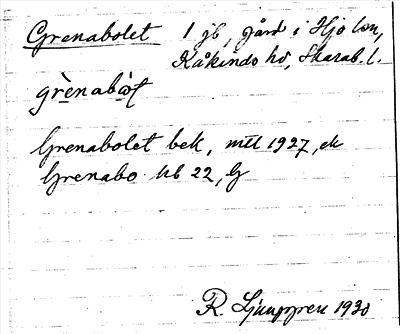 Grenabolet 1 jb, gård i Hjo lsn,
Kåkinds hd, Skarab. l.
grènabò̀t
Grenabolet bek, mtl 1927, ek
Grenabo hb 22, G
R. Ljunggren 1930